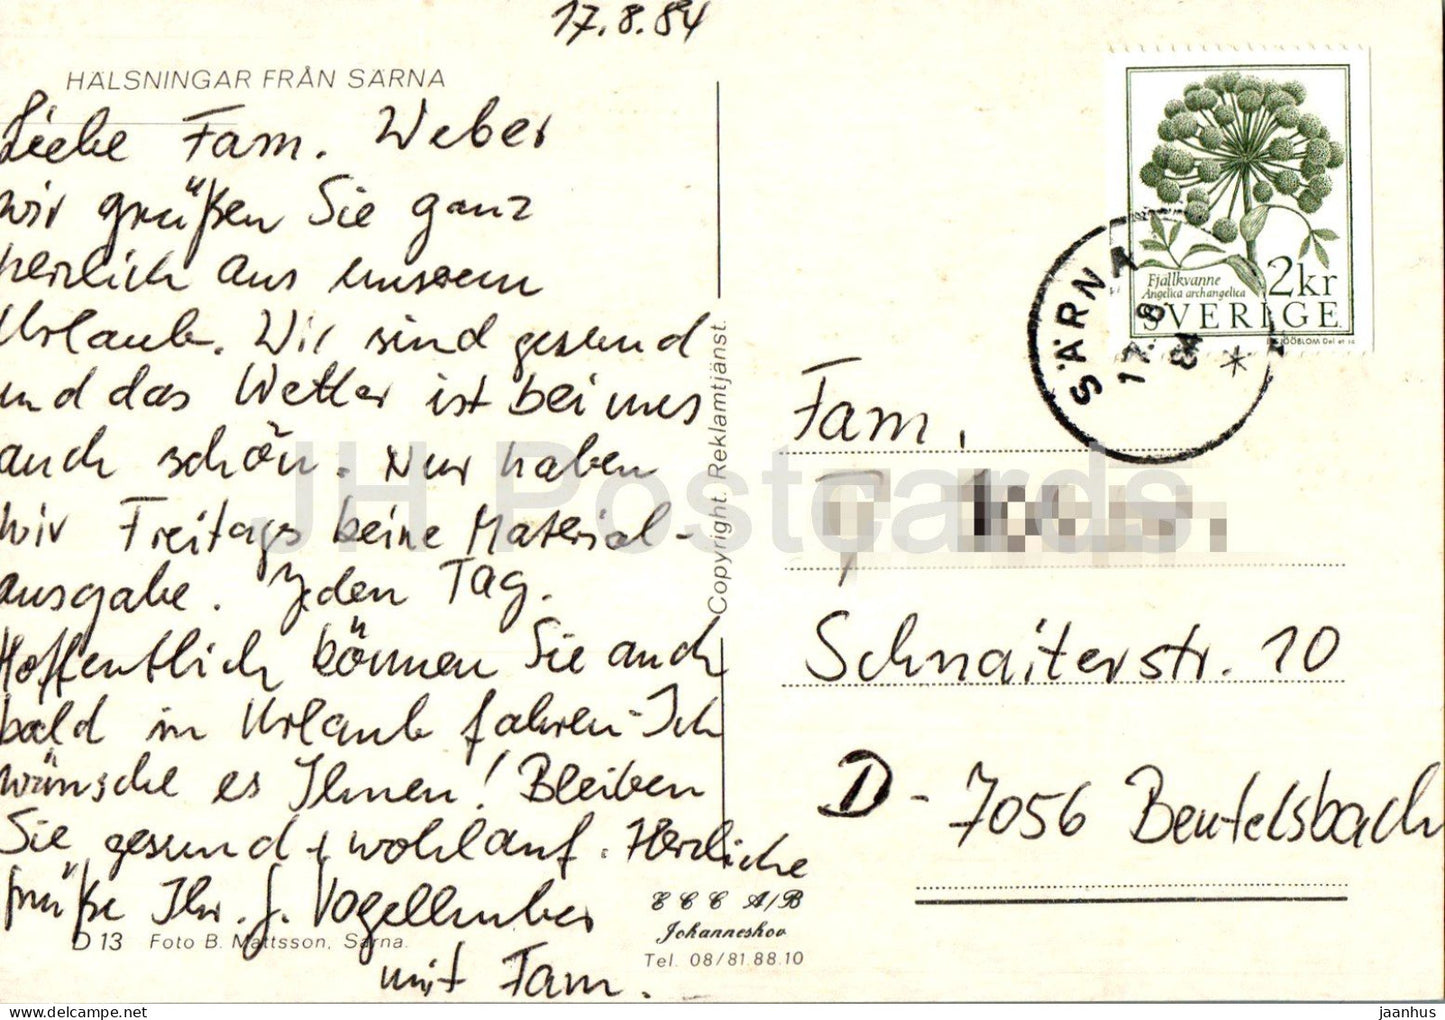 17.8.84
HÄLSNINGAR FRÅN SÄRNA
Liebe Fam. Weber
wir grüßen Sie ganz
herzlich aus unserem
Urlaub. Wir sind gesund
und das Wetter ist bei uns
auch schön. Nur haben
wir Freitags keine Material-
ausgabe. Jeden Tag.
Hoffentlich können Sie auch
bald in Urlaub fahren - Ich
wünsche es Ihnen! Bleiben
Sie gesund + wohlauf. Herzliche
Grüße Ihr. J. Vogellhuber
mit Fam.
D 13 Foto B. Mattsson, Särna.
Copyright. Reklamtjänst.
CCC A/B
Johanneshov
Tel. 08/81.88.10
Fjällkvanne
Angelica archangelica
2kr
SVERIGE
SÄRNA
17.8
84
*
Fam.
Schnaiterstr. 10
D - 7056 Beutelsbach
JH Postcards
jaanhus